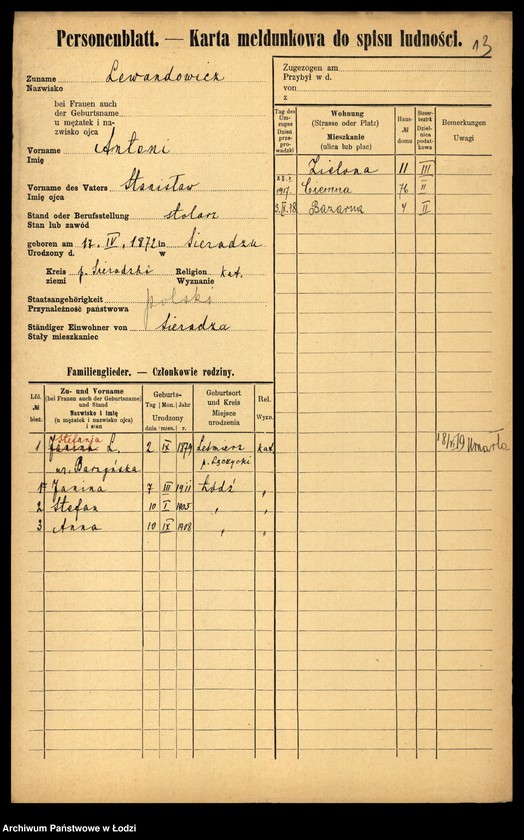 Personenblatt. — Karta meldunkowa do spisu ludności. 13
Zuname Lewandowicz
Nazwisko
bei Frauen auch
der Geburtsname
u mężatek i na-
zwisko ojca
Vorname Antoni
Imię
Vorname des Vaters Stanisław
Imię ojca
Stand oder Berufsstellung stolarz
Stan lub zawód
geboren am 17. IV. 1872 in Sieradzu
Urodzony d. w
Kreis p. Sieradzki Religion kat.
ziemi Wyznanie
Staatsangehörigkeit polski
Przynależność państwowa
Ständiger Einwohner von Sieradza
Stały mieszkaniec
Zugezogen am
Przybył w d.
von
z
Tag des Um-zuges Dzień prze-prowadzki
Wohnung (Strasse oder Platz) Mieszkanie (ulica lub plac)
Haus- № domu
Steuer-bezirk Dzielnica podat-kowa
Bemerkungen Uwagi
Zielona 11 III
1917. Ciemna 76 II
Bazarna 4 II
Familienglieder. — Członkowie rodziny.
Lfd. № bież.
Zu- und Vorname (bei Frauen auch der Geburtsname) und Stand Nazwisko i imię (u mężatek i nazwisko ojca) i stan
Geburts- Tag Mon. Jahr Urodzony dnia mies. r.
Geburtsort und Kreis Miejsce urodzenia
Rel. Wyzn.
Stefania
1 Janina L. 2 IX 1879 Leśmierz kat. Umarła
p. Łęczycki
1 Janina 7 III 1911 Łódź „
2 Stefan 10 I 1905 „ „
3 Anna 10 IX 1908 „ „
Archiwum Państwowe w Łodzi